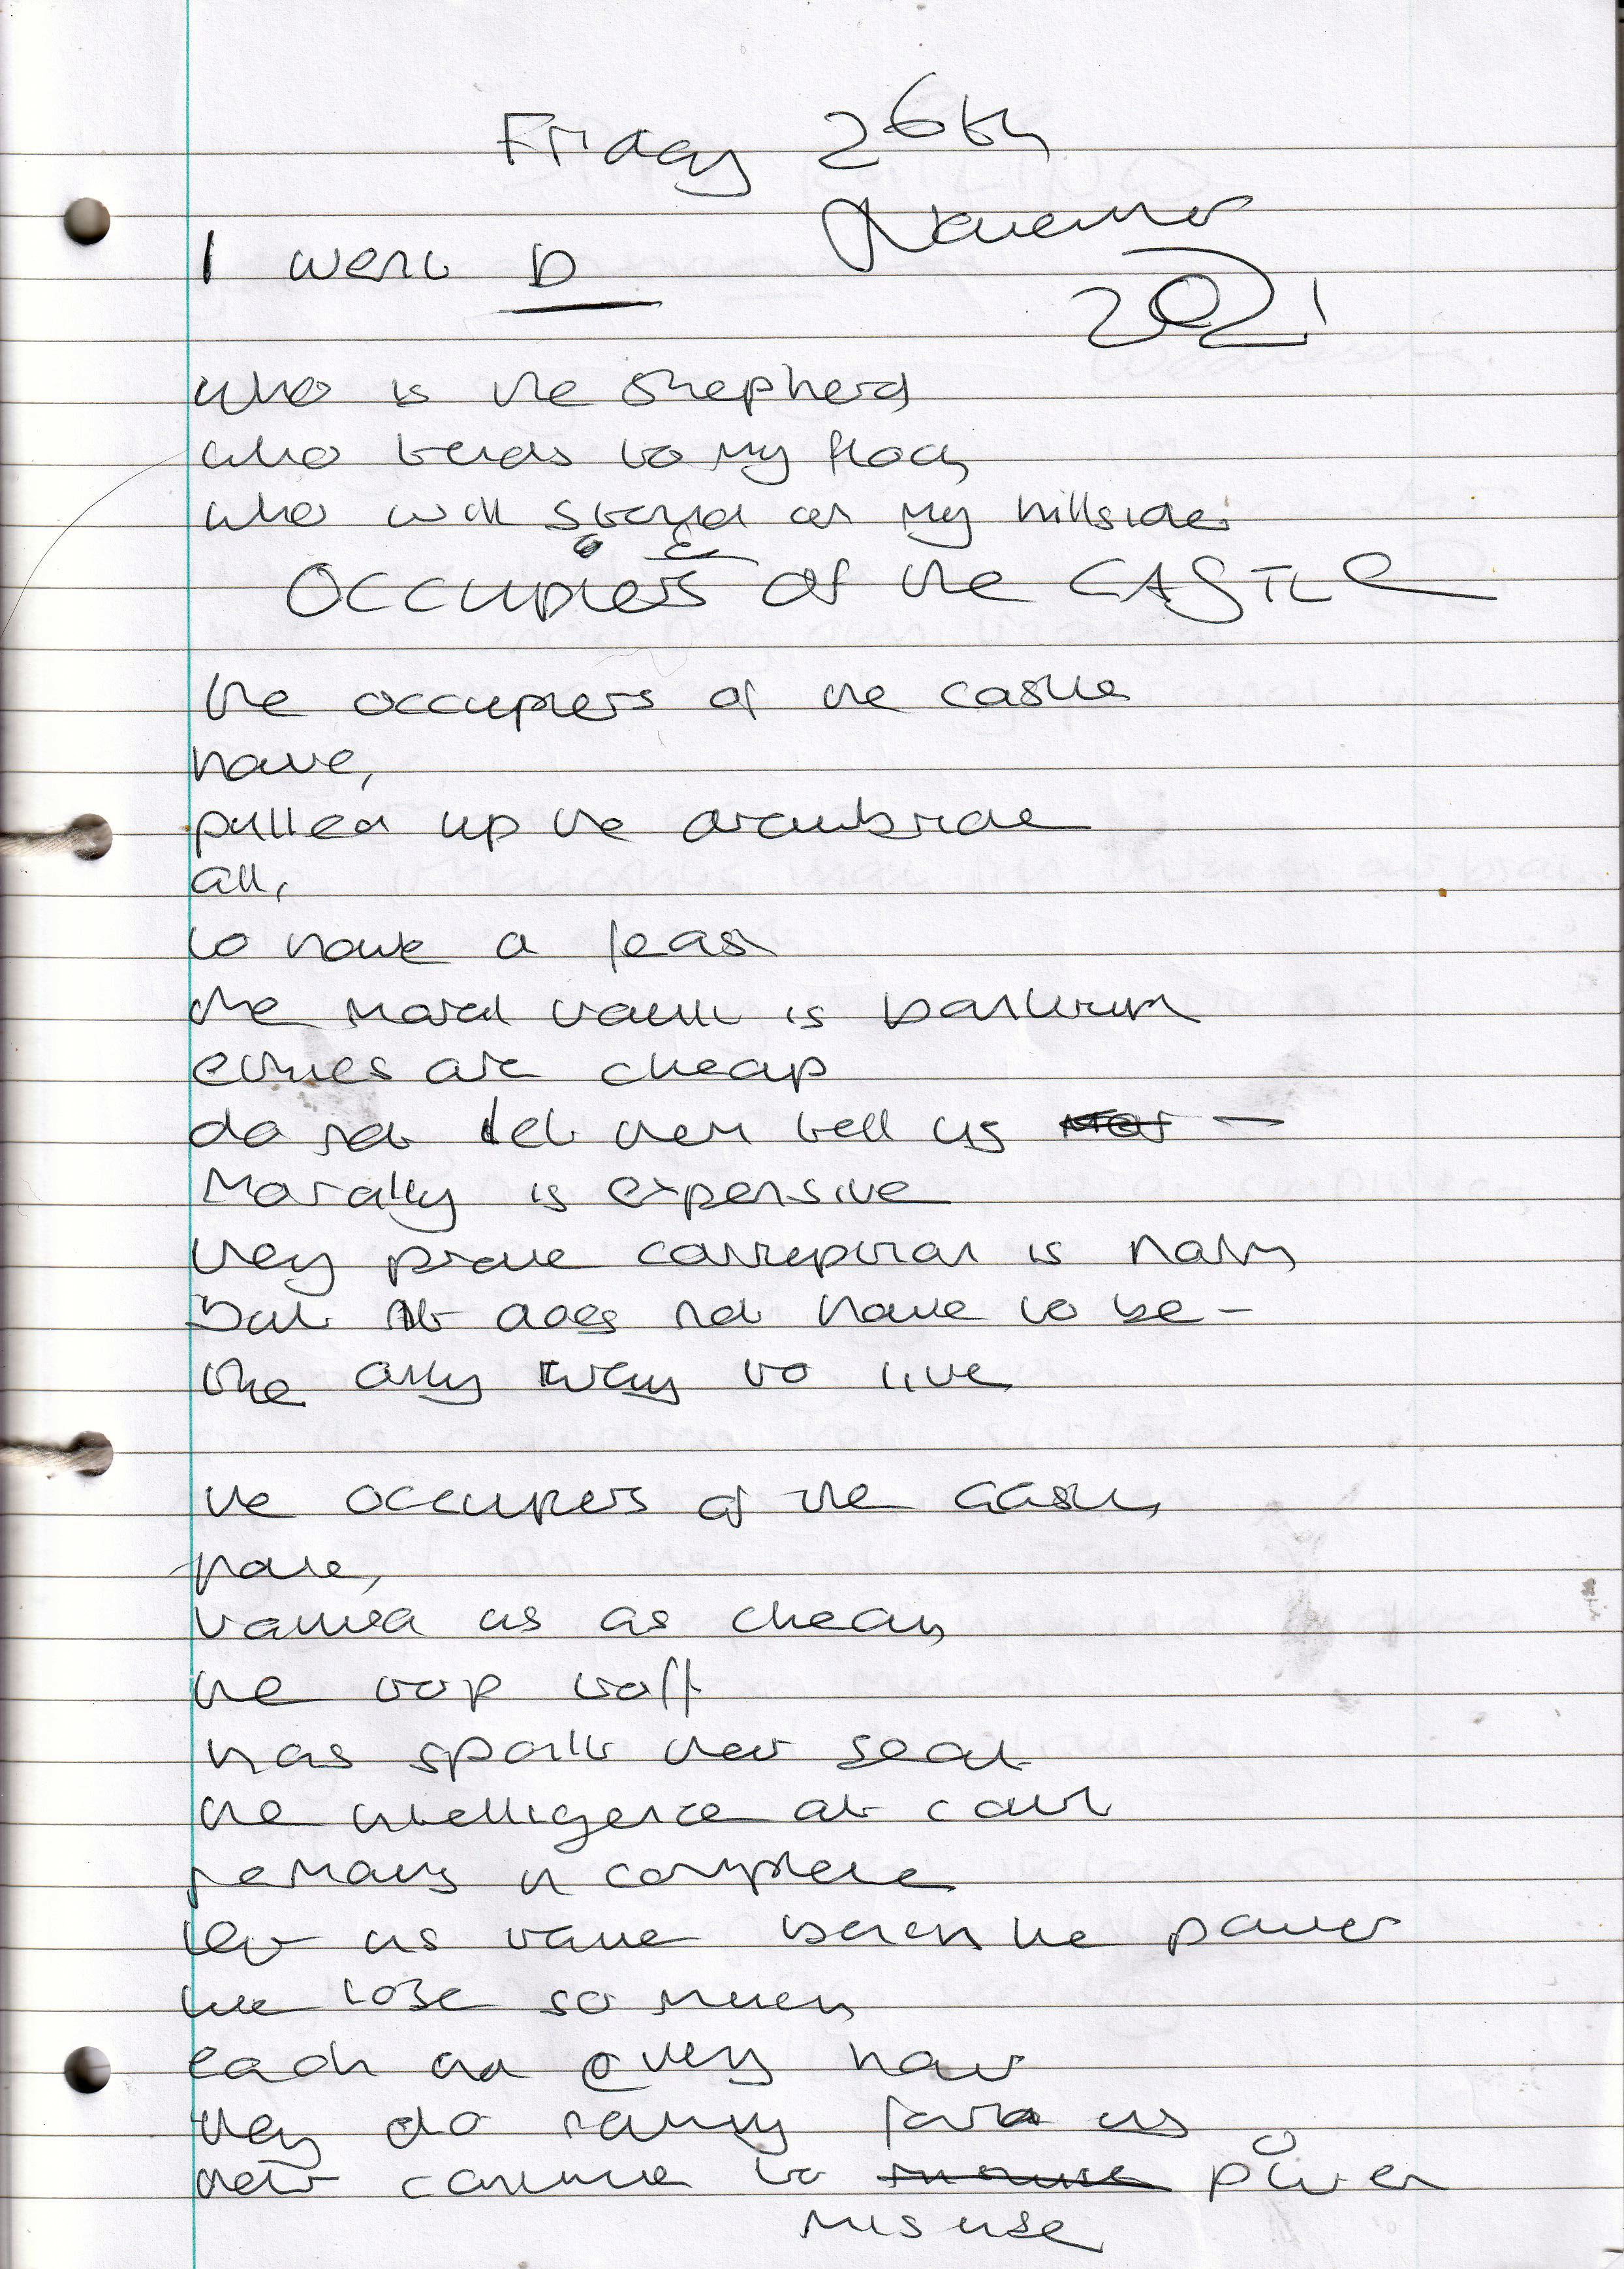 Friday 26th
November
2021
I went D
who is the shepherd
who tends to my flock
who will stand on my hillside
OCCUPIERS of the CASTLE
the occupiers of the castle
have,
pulled up the drawbride
all,
to have a feast
the moral vault is bankrupt
ethics are cheap
do not let them tell us
Morality is expensive
they prove corruption is
but it does not have to be -
the only way to live
the occupiers of the castle
have,
valued us as cheap
the top toff
has spoilt their seat
the intelligence at court
remains in complete
let us value the power
we lose so much
each and every hour
they do for us
their continue to power
misuse